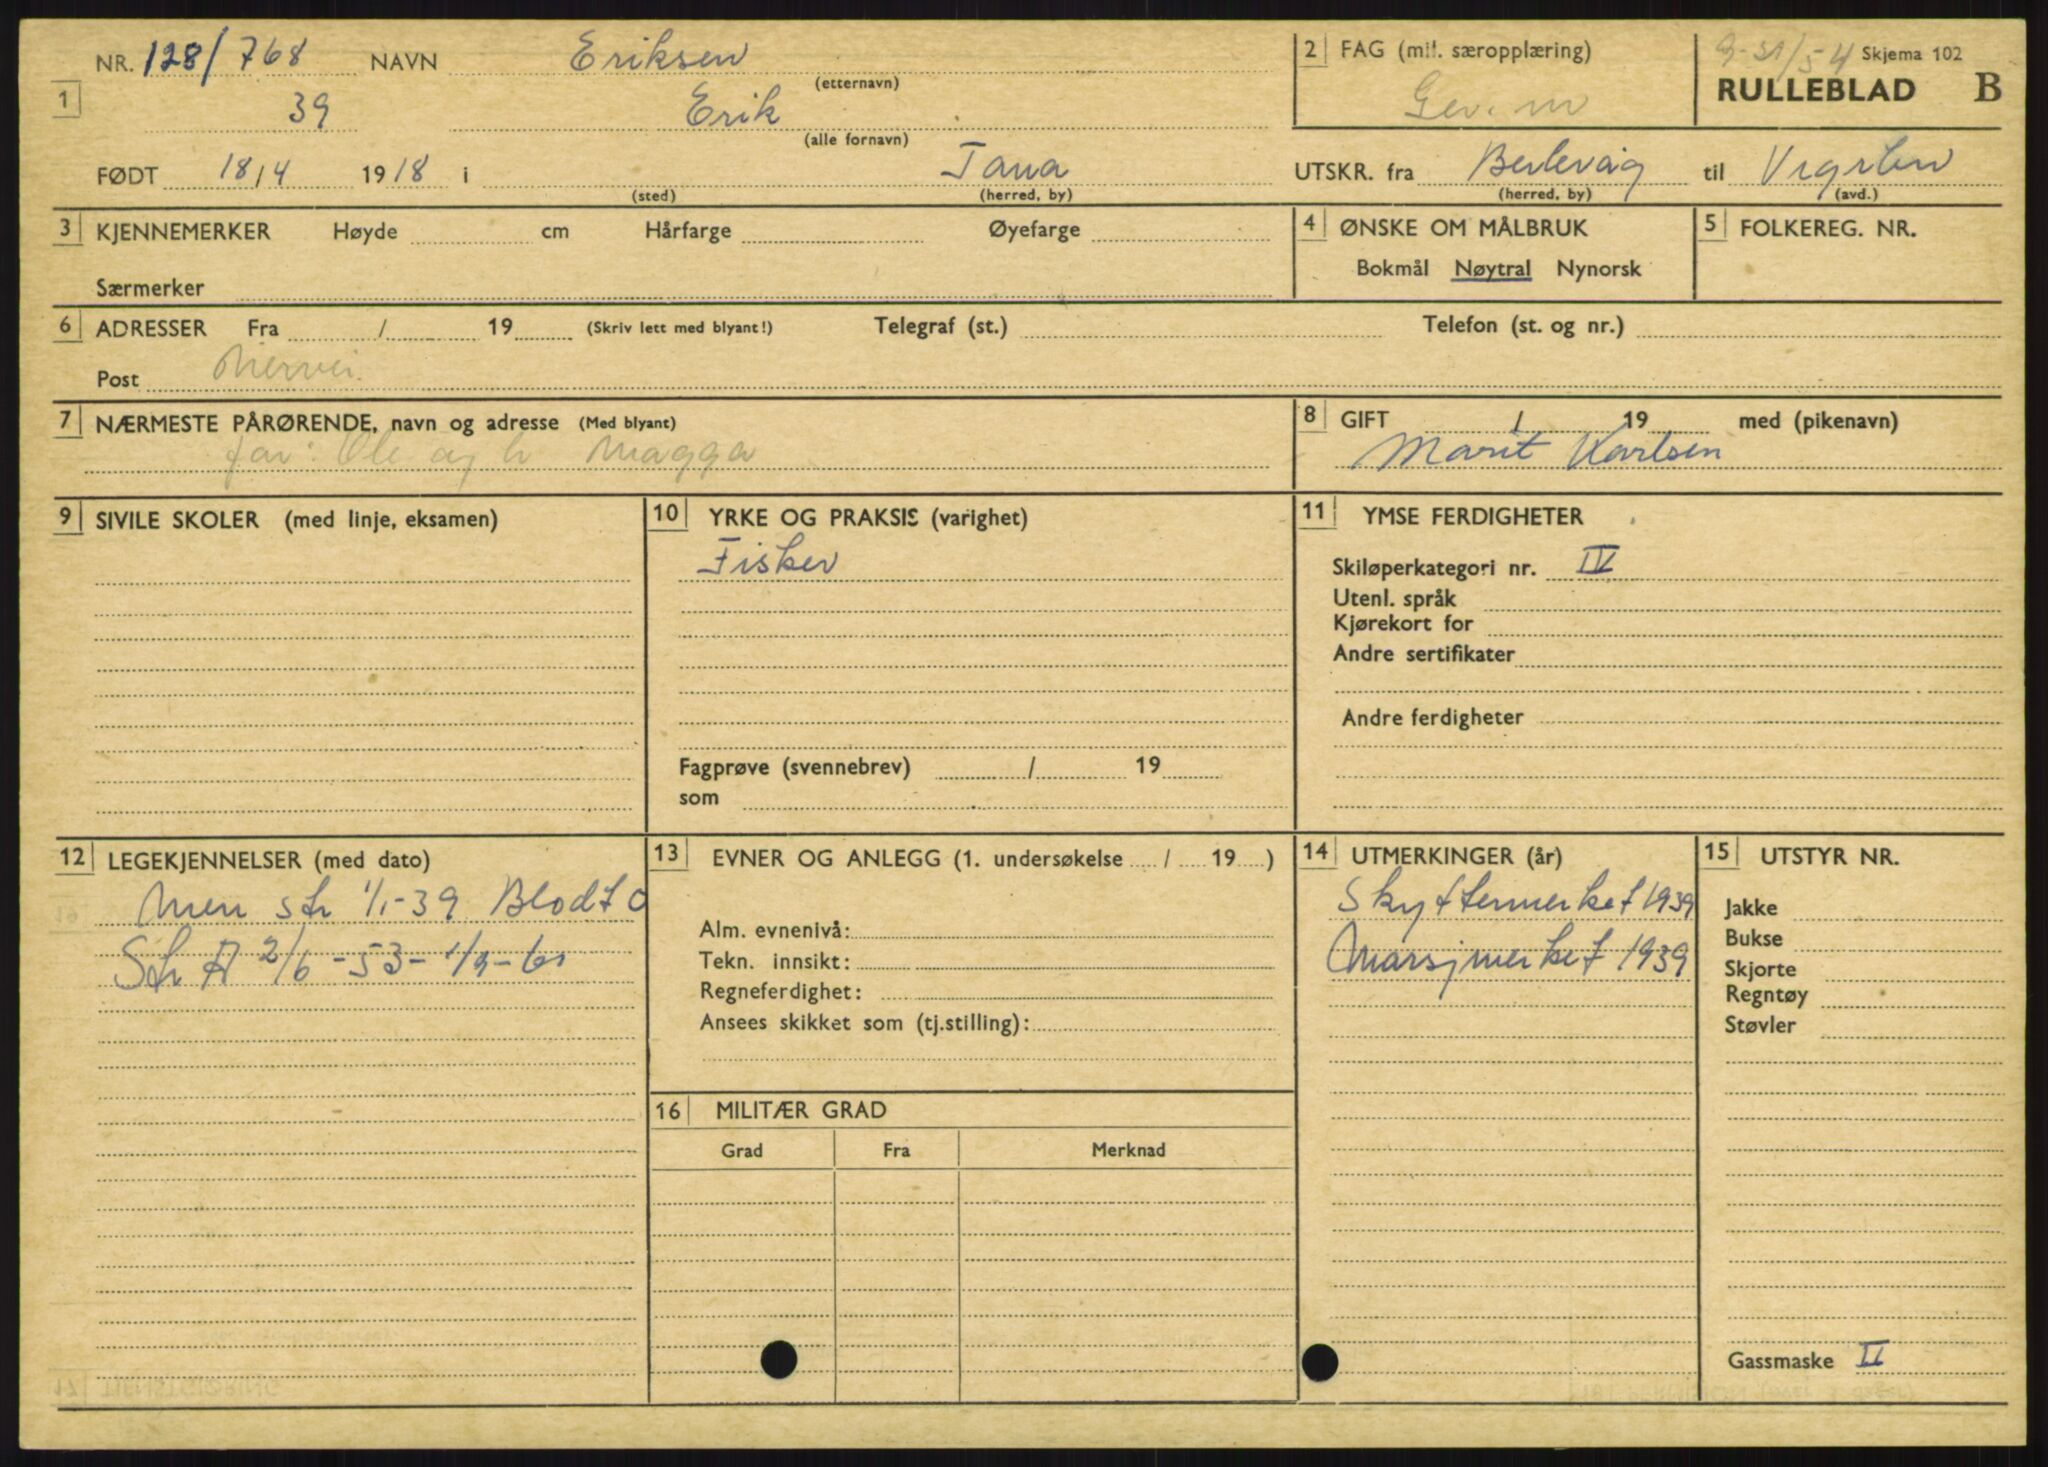 NR. 128/768 NAVN Eriksen 2 FAG (mil. særopplæring) 9-31/5-4 Skjema 102
(etternavn) Gev. m RULLEBLAD B
1 39 Erik
(alle fornavn)
FØDT 18/4 1918 i Tana UTSKR. fra Berlevåg til
(sted) (herred, by) (herred, by) (avd.)
3 KJENNEMERKER Høyde cm Hårfarge Øyefarge 4 ØNSKE OM MÅLBRUK 5 FOLKEREG. NR.
Bokmål Nøytral Nynorsk
Særmerker
6 ADRESSER Fra / 19 (Skriv lett med blyant!) Telegraf (st.) Telefon (st. og nr.)
Post
7 NÆRMESTE PÅRØRENDE, navn og adresse (Med blyant) 8 GIFT / 19 med (pikenavn)
far: Ole og Magga Marit Karlsen
9 SIVILE SKOLER (med linje, eksamen) 10 YRKE OG PRAKSIS (varighet) 11 YMSE FERDIGHETER
Fisker
Skiløperkategori nr. IV
Utenl. språk
Kjørekort for
Andre sertifikater
Andre ferdigheter
Fagprøve (svennebrev) / 19
som
12 LEGEKJENNELSER (med dato) 13 EVNER OG ANLEGG (1. undersøkelse / 19 ) 14 UTMERKINGER (år) 15 UTSTYR NR.
Men str 1/1-39 Blodt O Skyttermerket 1939 Jakke
Alm. evnenivå: Bukse
Str A 2/6-53- Tekn. innsikt: Marsjmerket 1939 Skjorte
Regneferdighet: Regntøy
Ansees skikket som (tj.stilling): Støvler
16 MILITÆR GRAD
Grad Fra Merknad
Gassmaske II